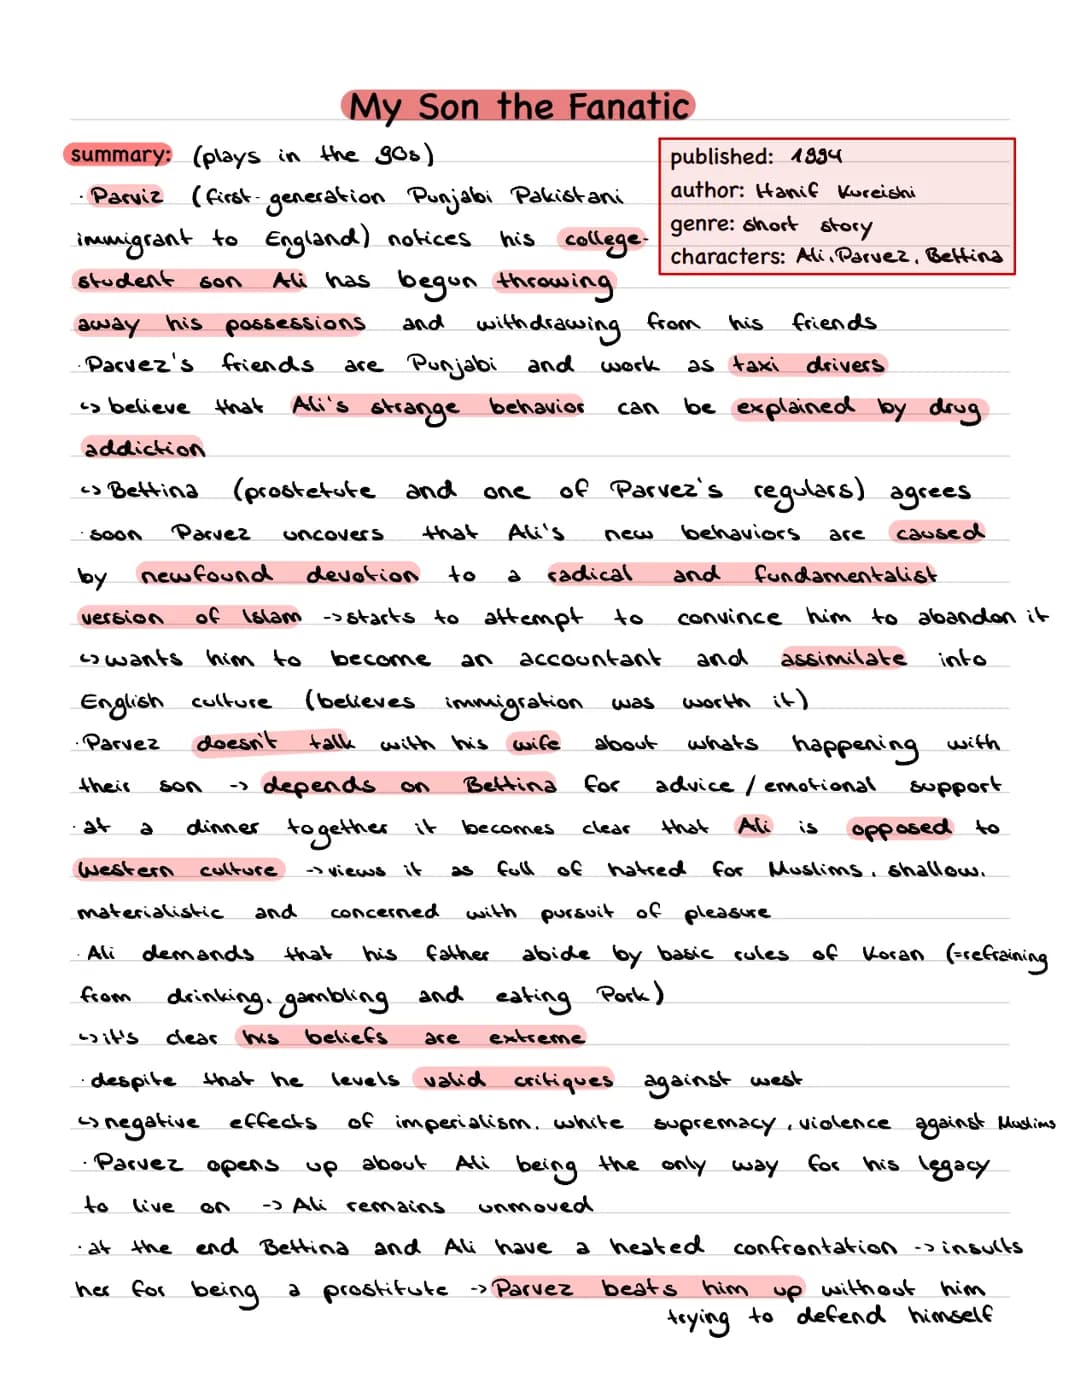 My Son the Fanatic
summary: (plays in the 90s)
published: 1994
author: Hanif Kureishi
genre: short story
characters: Ali, Parvez, Bettina
· Parviz (first-generation Punjabi Pakistani
immigrant to England) notices his college-
student son Ali has begun throwing
away his possessions and withdrawing from his friends
· Parvez's friends are Punjabi and work as taxi drivers
↳ believe that Ali's strange behavior can be explained by drug
addiction
↳ Bettina (prostetute and one of Parvez's regulars) agrees
· soon Parvez uncovers that Ali's new behaviors are caused
by newfound devotion to a radical and fundamentalist
version of Islam -> starts to attempt to convince him to abandon it
↳ wants him to become an accountant and assimilate into
English culture (believes immigration was worth it)
· Parvez doesn't talk with his wife about whats happening with
their son -> depends on Bettina for advice / emotional support
· at a dinner together it becomes clear that Ali is opposed to
Western culture -> views it as full of hatred for Muslims, shallow,
materialistic and concerned with pursuit of pleasure
· Ali demands that his father abide by basic rules of Koran (=refraining
from drinking, gambling and eating Pork)
↳ it's clear his beliefs are extreme
· despite that he levels valid critiques against west
↳ negative effects of imperialism, white supremacy, violence against Muslims
· Parvez opens up about Ali being the only way for his legacy
to live on -> Ali remains unmoved
· at the end Bettina and Ali have a heated confrontation -> insults
her for being a prostitute -> Parvez beats him up without him
trying to defend himself